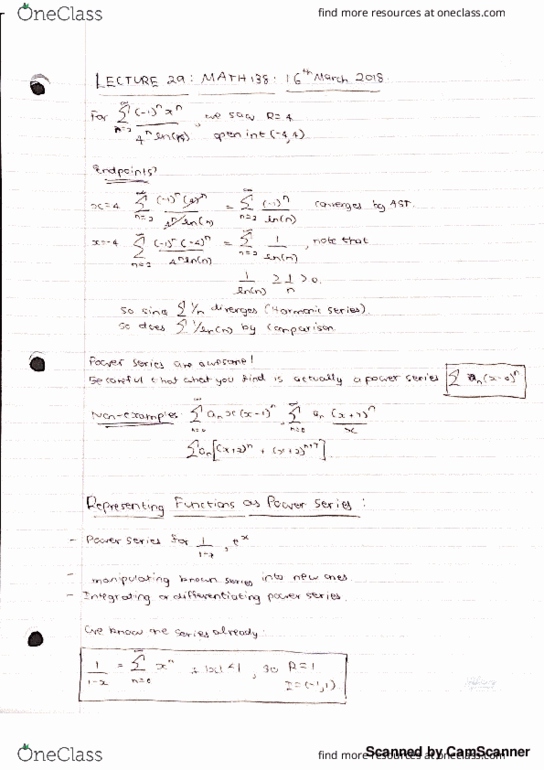 OneClass
find more resources at oneclass.com
LECTURE 29: MATH 138: 16th March 2018
For ∑_{n=2}^∞ (-1)^n x^n / 4^n ln(n), we saw R=4
open int (-4,4)
Endpoints?
x=4 ∑_{n=2}^∞ (-1)^n (4)^n / 4^n ln(n) = ∑_{n=2}^∞ (-1)^n / ln(n) converges by AST.
x=-4 ∑_{n=2}^∞ (-1)^n (-4)^n / 4^n ln(n) = ∑_{n=2}^∞ 1 / ln(n), note that
1/ln(n) ≥ 1/n > 0.
So since ∑ 1/n diverges (Harmonic series).
so does ∑ 1/ln(n) by comparison
Power series are awesome!
Be careful that what you find is actually a power series ∑ a_n (x-a)^n
Non-examples ∑_{n=0}^∞ a_n x(x-1)^n, ∑_{n=0}^∞ a_n (x+7)^n / x
∑ a_n [(x+2)^n + (x+2)^{n+7}]
Representing Functions as Power Series:
- Power series for 1/1-x, e^x
- manipulating known series into new ones
- Integrating or differentiating power series.
We know one series already:
1/1-x = ∑_{n=0}^∞ x^n, |x|<1, so R=1
I=(-1,1)
OneClass
find more resources at oneclass.com
Scanned by CamScanner